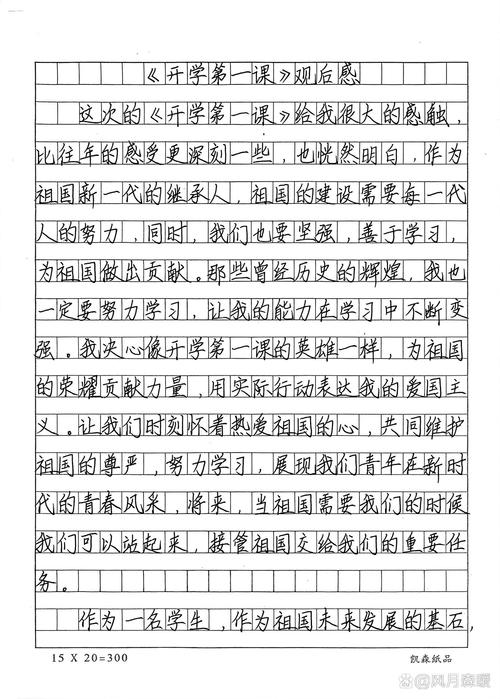 《开学第一课》观后感
这次的《开学第一课》给我很大的感触，
比往年的感受更深刻一些，也恍然明白，作为
祖国新一代的继承人，祖国的建设需要每一代
人的努力，同时，我们也要坚强，善于学习，
为祖国做出贡献。那些曾经历史的辉煌，我也
一定要努力学习，让我的能力在学习中不断变
强。我决心像开学第一课的英雄一样，为祖国
的荣耀贡献力量，用实际行动表达我的爱国主
义。让我们时刻怀着热爱祖国的心，共同维护
祖国的尊严，努力学习，展现我们青年在新时
代的青春风采，将来，当祖国需要我们的时候
我们可以站起来，接管祖国交给我们的重要任
务。
作为一名学生，作为祖国未来发展的基石，
15 X 20=300
凯森纸品
@风月森暖